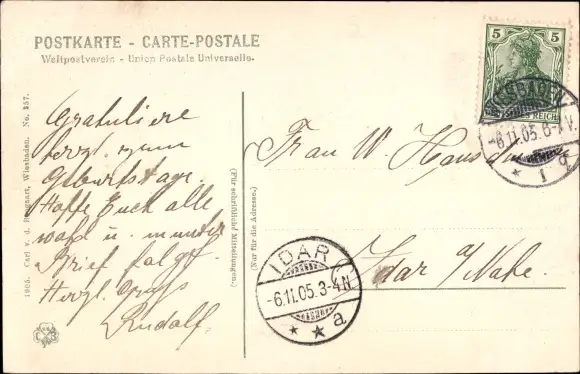 POSTKARTE - CARTE-POSTALE
Weltpostverein - Union Postale Universelle.
5 5
REICH
WIESBADEN
-6.11.05. 8-9V.
* 1 g
Gratuliere
herzl. zum
Geburtstage.
Hoffe Euch alle
wohl u. munter
Brief folgt.
Herzl. Gruss
Rudolf
1905. Carl v. d. Boogaart, Wiesbaden. No. 357.
(Für schriftliche Mitteilungen.)
(Nur für die Adresse.)
Frau W.
Idar a/Nahe.
IDAR
-6.11.05.3-4N
* * a